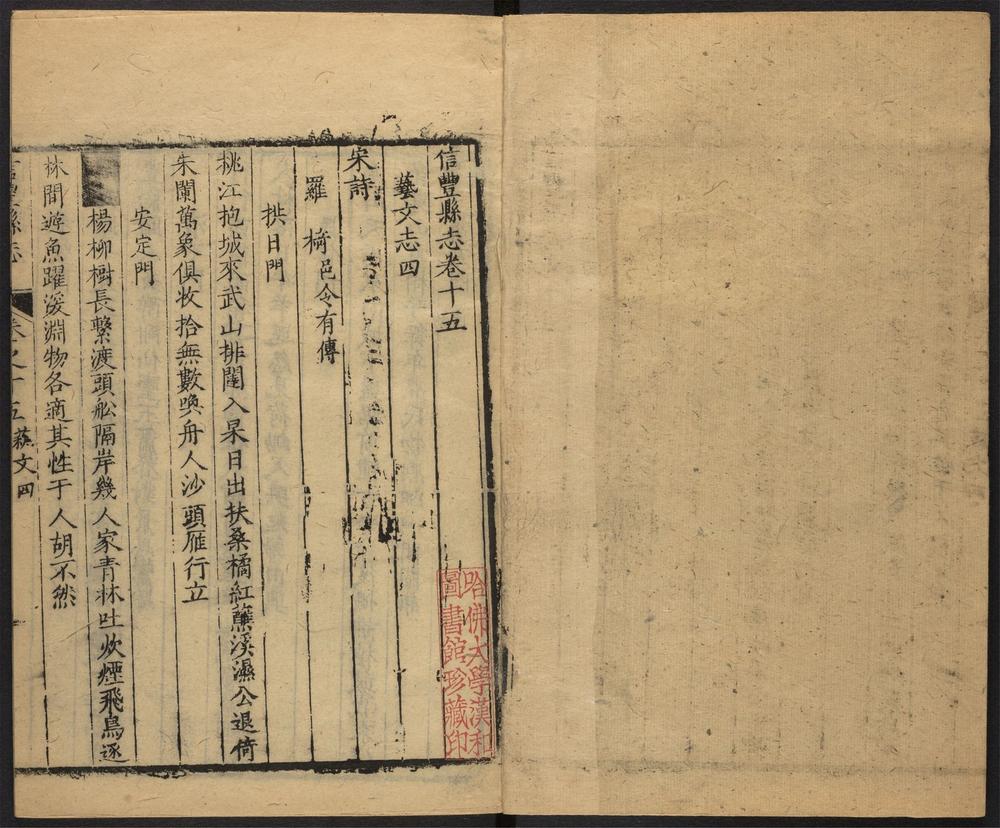 信豐縣志卷十五
藝文志四
宋詩
羅 椅邑令有傳
拱日門
桃江抱城來武山排闥入杲日出扶桑橘紅蘸溪濕公退倚
朱闌萬象俱收拾無數喚舟人沙頭雁行立
安定門
楊柳樹長繫渡頭舩隔岸幾人家青林吐炊煙飛鳥逐
林間遊魚躍淵物各適其性于人胡不然
縣志 卷之十五 藝文四
哈佛大學漢和
圖書館珍藏印